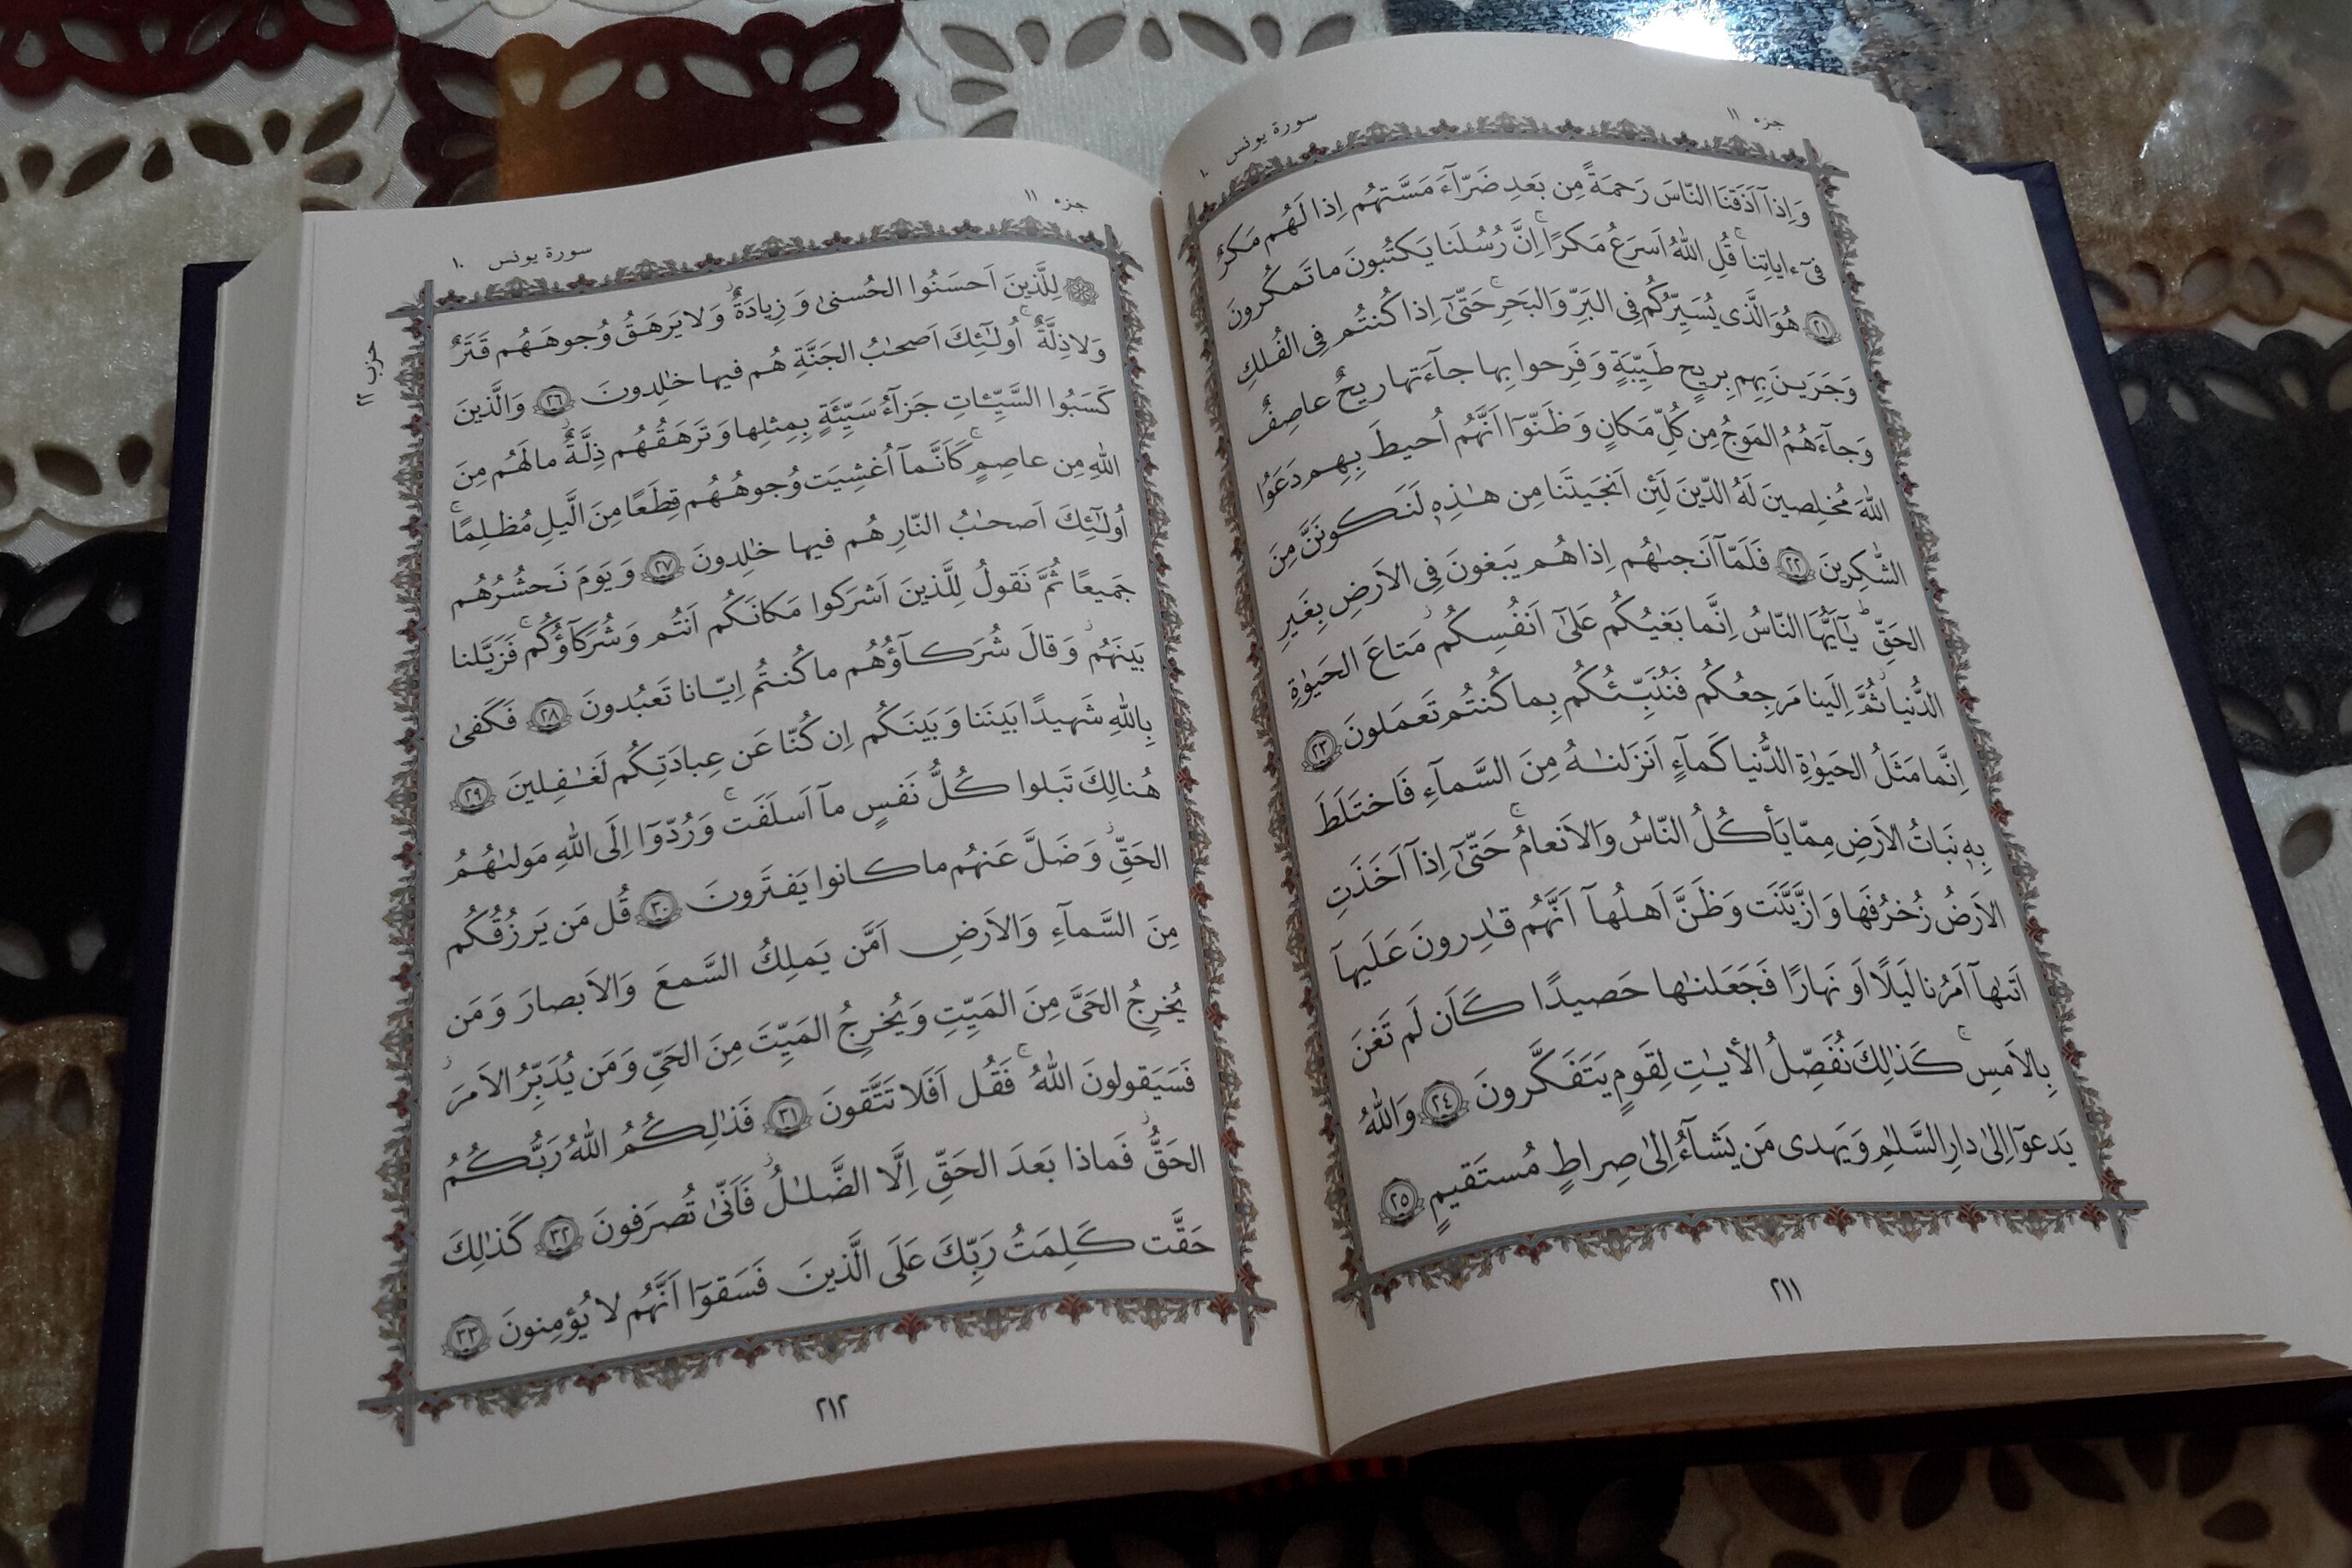 جزء ١١
سورة يونس ١٠
وَاِذآ اَذَقنَا النّاسَ رَحمَةً مِن بَعدِ ضَرّآءَ مَسَّتهُم اِذا لَهُم مَكرٌ
فىٓ ءاياتِنا ۚ قُلِ اللهُ اَسرَعُ مَكرًا ۚ اِنَّ رُسُلَنا يَكتُبونَ ما تَمكُرونَ
﴿٢١﴾ هُوَ الَّذى يُسَيِّرُكُم فِى البَرِّ وَالبَحرِ ۚ حَتّىٰٓ اِذا كُنتُم فِى الفُلكِ
وَجَرَينَ بِهِم بِريحٍ طَيِّبَةٍ وَفَرِحوا بِها جآءَتها ريحٌ عاصِفٌ
وَجآءَهُمُ المَوجُ مِن كُلِّ مَكانٍ وَظَنّوٓا اَنَّهُم اُحيطَ بِهِم دَعَوُا
اللهَ مُخلِصينَ لَهُ الدّينَ لَئِن اَنجَيتَنا مِن هٰذِهِ لَنَكونَنَّ مِنَ
الشّٰكِرينَ ﴿٢٢﴾ فَلَمّآ اَنجىٰهُم اِذا هُم يَبغونَ فِى الاَرضِ بِغَيرِ
الحَقِّ ۗ يٰٓاَيُّهَا النّاسُ اِنَّما بَغيُكُم عَلىٰٓ اَنفُسِكُم ۖ مَتاعَ الحَيوٰةِ
الدُّنيا ۖ ثُمَّ اِلَينا مَرجِعُكُم فَنُنَبِّئُكُم بِما كُنتُم تَعمَلونَ ﴿٢٣﴾
اِنَّما مَثَلُ الحَيوٰةِ الدُّنيا كَمآءٍ اَنزَلنٰهُ مِنَ السَّمآءِ فَاختَلَطَ
بِهِ نَباتُ الاَرضِ مِمّا يَأكُلُ النّاسُ وَالاَنعامُ ۚ حَتّىٰٓ اِذآ اَخَذَتِ
الاَرضُ زُخرُفَها وَازَّيَّنَت وَظَنَّ اَهلُهآ اَنَّهُم قٰدِرونَ عَلَيهآ
اَتىٰهآ اَمرُنا لَيلًا اَو نَهارًا فَجَعَلنٰها حَصيدًا كَاَن لَم تَغنَ
بِالاَمسِ ۚ كَذٰلِكَ نُفَصِّلُ الأيٰتِ لِقَومٍ يَتَفَكَّرونَ ﴿٢٤﴾ وَاللهُ
يَدعوٓا اِلىٰ دارِ السَّلٰمِ وَيَهدى مَن يَشآءُ اِلىٰ صِراطٍ مُستَقيمٍ ﴿٢٥﴾
٢١١
جزء ١١
سورة يونس ١٠
حزب ٢٢
۞ لِلَّذينَ اَحسَنُوا الحُسنىٰ وَزِيادَةٌ ۖ وَلا يَرهَقُ وُجوهَهُم قَتَرٌ
وَلا ذِلَّةٌ ۚ اُولٰٓئِكَ اَصحٰبُ الجَنَّةِ هُم فيها خٰلِدونَ ﴿٢٦﴾ وَالَّذينَ
كَسَبُوا السَّيِّـٔاتِ جَزآءُ سَيِّئَةٍ بِمِثلِها وَتَرهَقُهُم ذِلَّةٌ ۖ ما لَهُم مِنَ
اللهِ مِن عاصِمٍ ۚ كَاَنَّمآ اُغشِيَت وُجوهُهُم قِطَعًا مِنَ الَّيلِ مُظلِمًا ۚ
اُولٰٓئِكَ اَصحٰبُ النّارِ هُم فيها خٰلِدونَ ﴿٢٧﴾ وَيَومَ نَحشُرُهُم
جَميعًا ثُمَّ نَقولُ لِلَّذينَ اَشرَكوا مَكانَكُم اَنتُم وَشُرَكآؤُكُم ۚ فَزَيَّلنا
بَينَهُم ۖ وَقالَ شُرَكآؤُهُم ما كُنتُم اِيّانا تَعبُدونَ ﴿٢٨﴾ فَكَفىٰ
بِاللهِ شَهيدًا بَينَنا وَبَينَكُم اِن كُنّا عَن عِبادَتِكُم لَغٰفِلينَ ﴿٢٩﴾
هُنالِكَ تَبلوا كُلُّ نَفسٍ مآ اَسلَفَت ۚ وَرُدّوٓا اِلَى اللهِ مَولىٰهُمُ
الحَقِّ ۖ وَضَلَّ عَنهُم ما كانوا يَفتَرونَ ﴿٣٠﴾ قُل مَن يَرزُقُكُم
مِنَ السَّمآءِ وَالاَرضِ اَمَّن يَملِكُ السَّمعَ وَالاَبصارَ وَمَن
يُخرِجُ الحَىَّ مِنَ المَيِّتِ وَيُخرِجُ المَيِّتَ مِنَ الحَىِّ وَمَن يُدَبِّرُ الاَمرَ ۖ
فَسَيَقولونَ اللهُ ۚ فَقُل اَفَلا تَتَّقونَ ﴿٣١﴾ فَذٰلِكُمُ اللهُ رَبُّكُمُ
الحَقُّ ۖ فَماذا بَعدَ الحَقِّ اِلَّا الضَّلٰلُ ۖ فَاَنّىٰ تُصرَفونَ ﴿٣٢﴾ كَذٰلِكَ
حَقَّت كَلِمَتُ رَبِّكَ عَلَى الَّذينَ فَسَقوٓا اَنَّهُم لا يُؤمِنونَ ﴿٣٣﴾
٢١٢